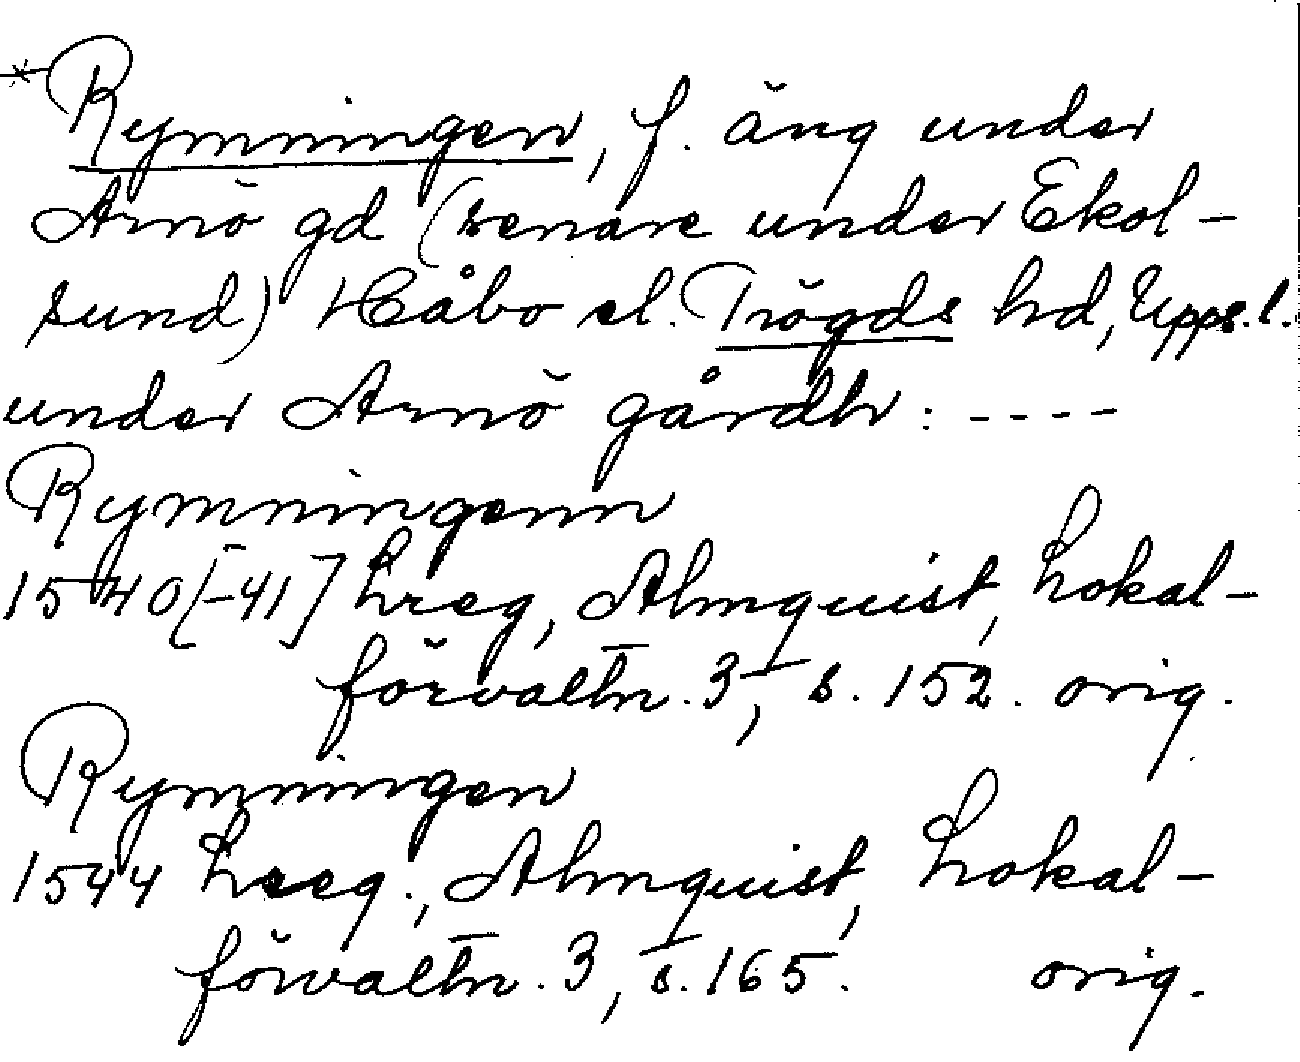 * Rymningen, f. äng under
Arnö gd (senare under Ekol-
sund) Håbo el. Trögds hd, Upps. l.
under Arnö gårdh : ----
Rymningenn
1540[-41] Lreg, Almquist, Lokal-
förvaltn. 3, s. 152. orig.
Rymningen
1544 Lreg., Almquist, Lokal-
förvaltn. 3, s. 165. orig.